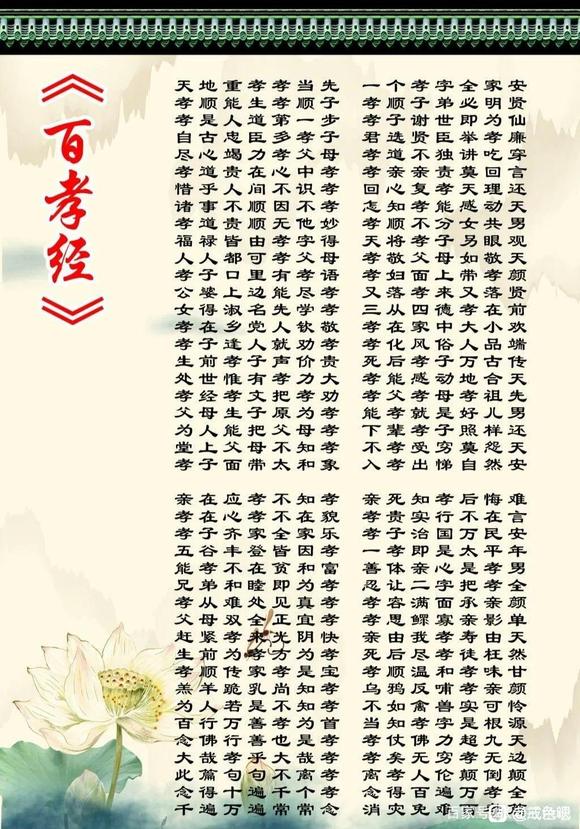 《百孝经》
天地重孝孝当先 一个孝字全家安
孝顺能生孝顺子 孝顺子弟必明贤
孝是人道第一步 孝子谢世即为仙
自古忠臣多孝子 君选贤臣举孝廉
尽心竭力孝父母 孝道不独讲吃穿
孝道贵在心中孝 孝亲亲责莫回言
惜乎人间不识孝 回心复孝天理还
诸事不顺因不孝 怎知孝能感动天
孝道贵顺无他妙 孝顺不分女共男
福禄皆由孝字得 天将孝子另眼观
人人都可孝父母 孝敬父母如敬天
孝子口里有孝语 孝妇面上带孝颜
公婆上边能尽孝 又落孝来又落贤
女得淑名先学孝 三从四德孝在前
孝在乡党人钦敬 孝在家中大小欢
孝子逢人就劝孝 孝化风俗人品端
生前孝子声价贵 死后孝子万古传
处世惟有孝力大 孝能感动地合天
孝经孝文把孝劝 孝父孝母孝祖先
父母生子原为孝 能孝就是好儿男
为人能把父母孝 下辈孝子照样还
堂上父母不知孝 不孝受穷莫怨天
孝子面带太和象 入出孝悌自然安
亲在应孝不知孝 亲死知孝后悔难
孝在心孝不在貌 孝贵实行不在言
孝子齐家全家乐 孝子治国万民安
五谷丰登皆因孝 一孝即是太平年
能孝不在贫和富 善体亲心是孝男
兄弟和睦即为孝 忍让二字把孝全
孝从难处见真孝 孝容满面承亲颜
父母双全正宜孝 孝思鳏寡亲影单
赶紧孝来光阴快 亲由我孝寿由天
生前为孝方为孝 死后尽孝徒枉然
孝顺传家孝是宝 孝顺温和孝味甘
羔羊跪乳尚知孝 乌鸦反哺孝亲颜
为人若是不知孝 不如禽兽实可怜
百行万善孝为首 当知孝字是根源
念佛行善也是孝 孝仗佛力超九天
大哉孝乎大哉孝 孝矣无穷孝无边
此篇句句不离孝 离孝人伦颠倒颠
念得十遍千个孝 念得百遍万孝全
千遍万遍常常念 消灾免难
百家号/@戒色嗯